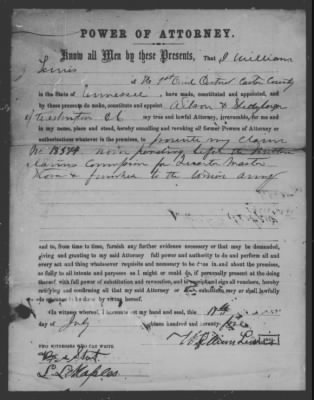 POWER OF ATTORNEY.
Know all Men by these Presents, That I William
Lewis
of the 1st Civil District Carter County
in the State of Tennessee, have made, constituted and appointed, and
by these presents do make, constitute and appoint Wilson &
of Washington my true and lawful Attorney, irrevocable, for me and
in my name, place and stead, hereby annulling and revoking all former Powers of Attorney or
authorizations whatever in the premises, to prosecute my claim
No 13574 now pending before the Southern
Claims Commission for Quarter Master
furnished to the Union Army
and to, from time to time, furnish any further evidence necessary or that may be demanded,
giving and granting to my said Attorney full power and authority to do and perform all and
every act and thing whatsoever requisite and necessary to be done in and about the premises,
as fully to all intents and purposes as I might or could do, if personally present at the doing
thereof, with full power of substitution and revocation, and to receipt and sign all vouchers, hereby
ratifying and confirming all that my said Attorney or substitute may or shall lawfully
do or cause to be done by virtue hereof.
In witness whereof, I hereunto set my hand and seal, this 17th
day of July eighteen hundred and seventy
William Lewis
TWO WITNESSES WHO CAN WRITE
S. L. Maples